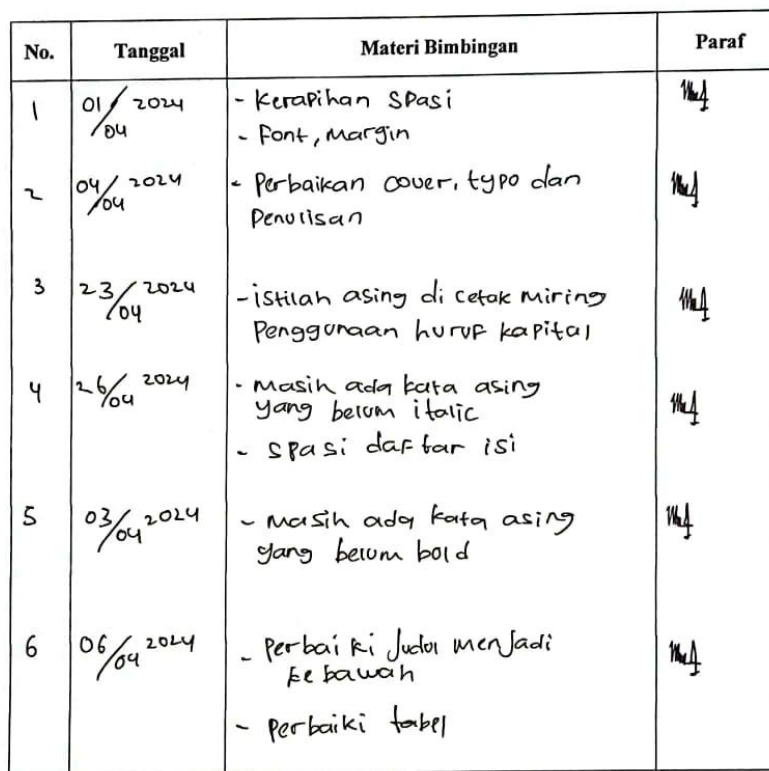 No. Tanggal Materi Bimbingan Paraf
1 01/04 2024 - Kerapihan Spasi
- Font, Margin
2 04/04 2024 - Perbaikan cover, typo dan
Penulisan
3 23/04 2024 - istilah asing di cetak miring
Penggunaan huruf kapital
4 26/04 2024 - Masih ada kata asing
yang belum italic
- Spasi daftar isi
5 03/04 2024 - Masih ada kata asing
yang belum bold
6 06/04 2024 - Perbaiki Judul menjadi
ke bawah
- Perbaiki tabel